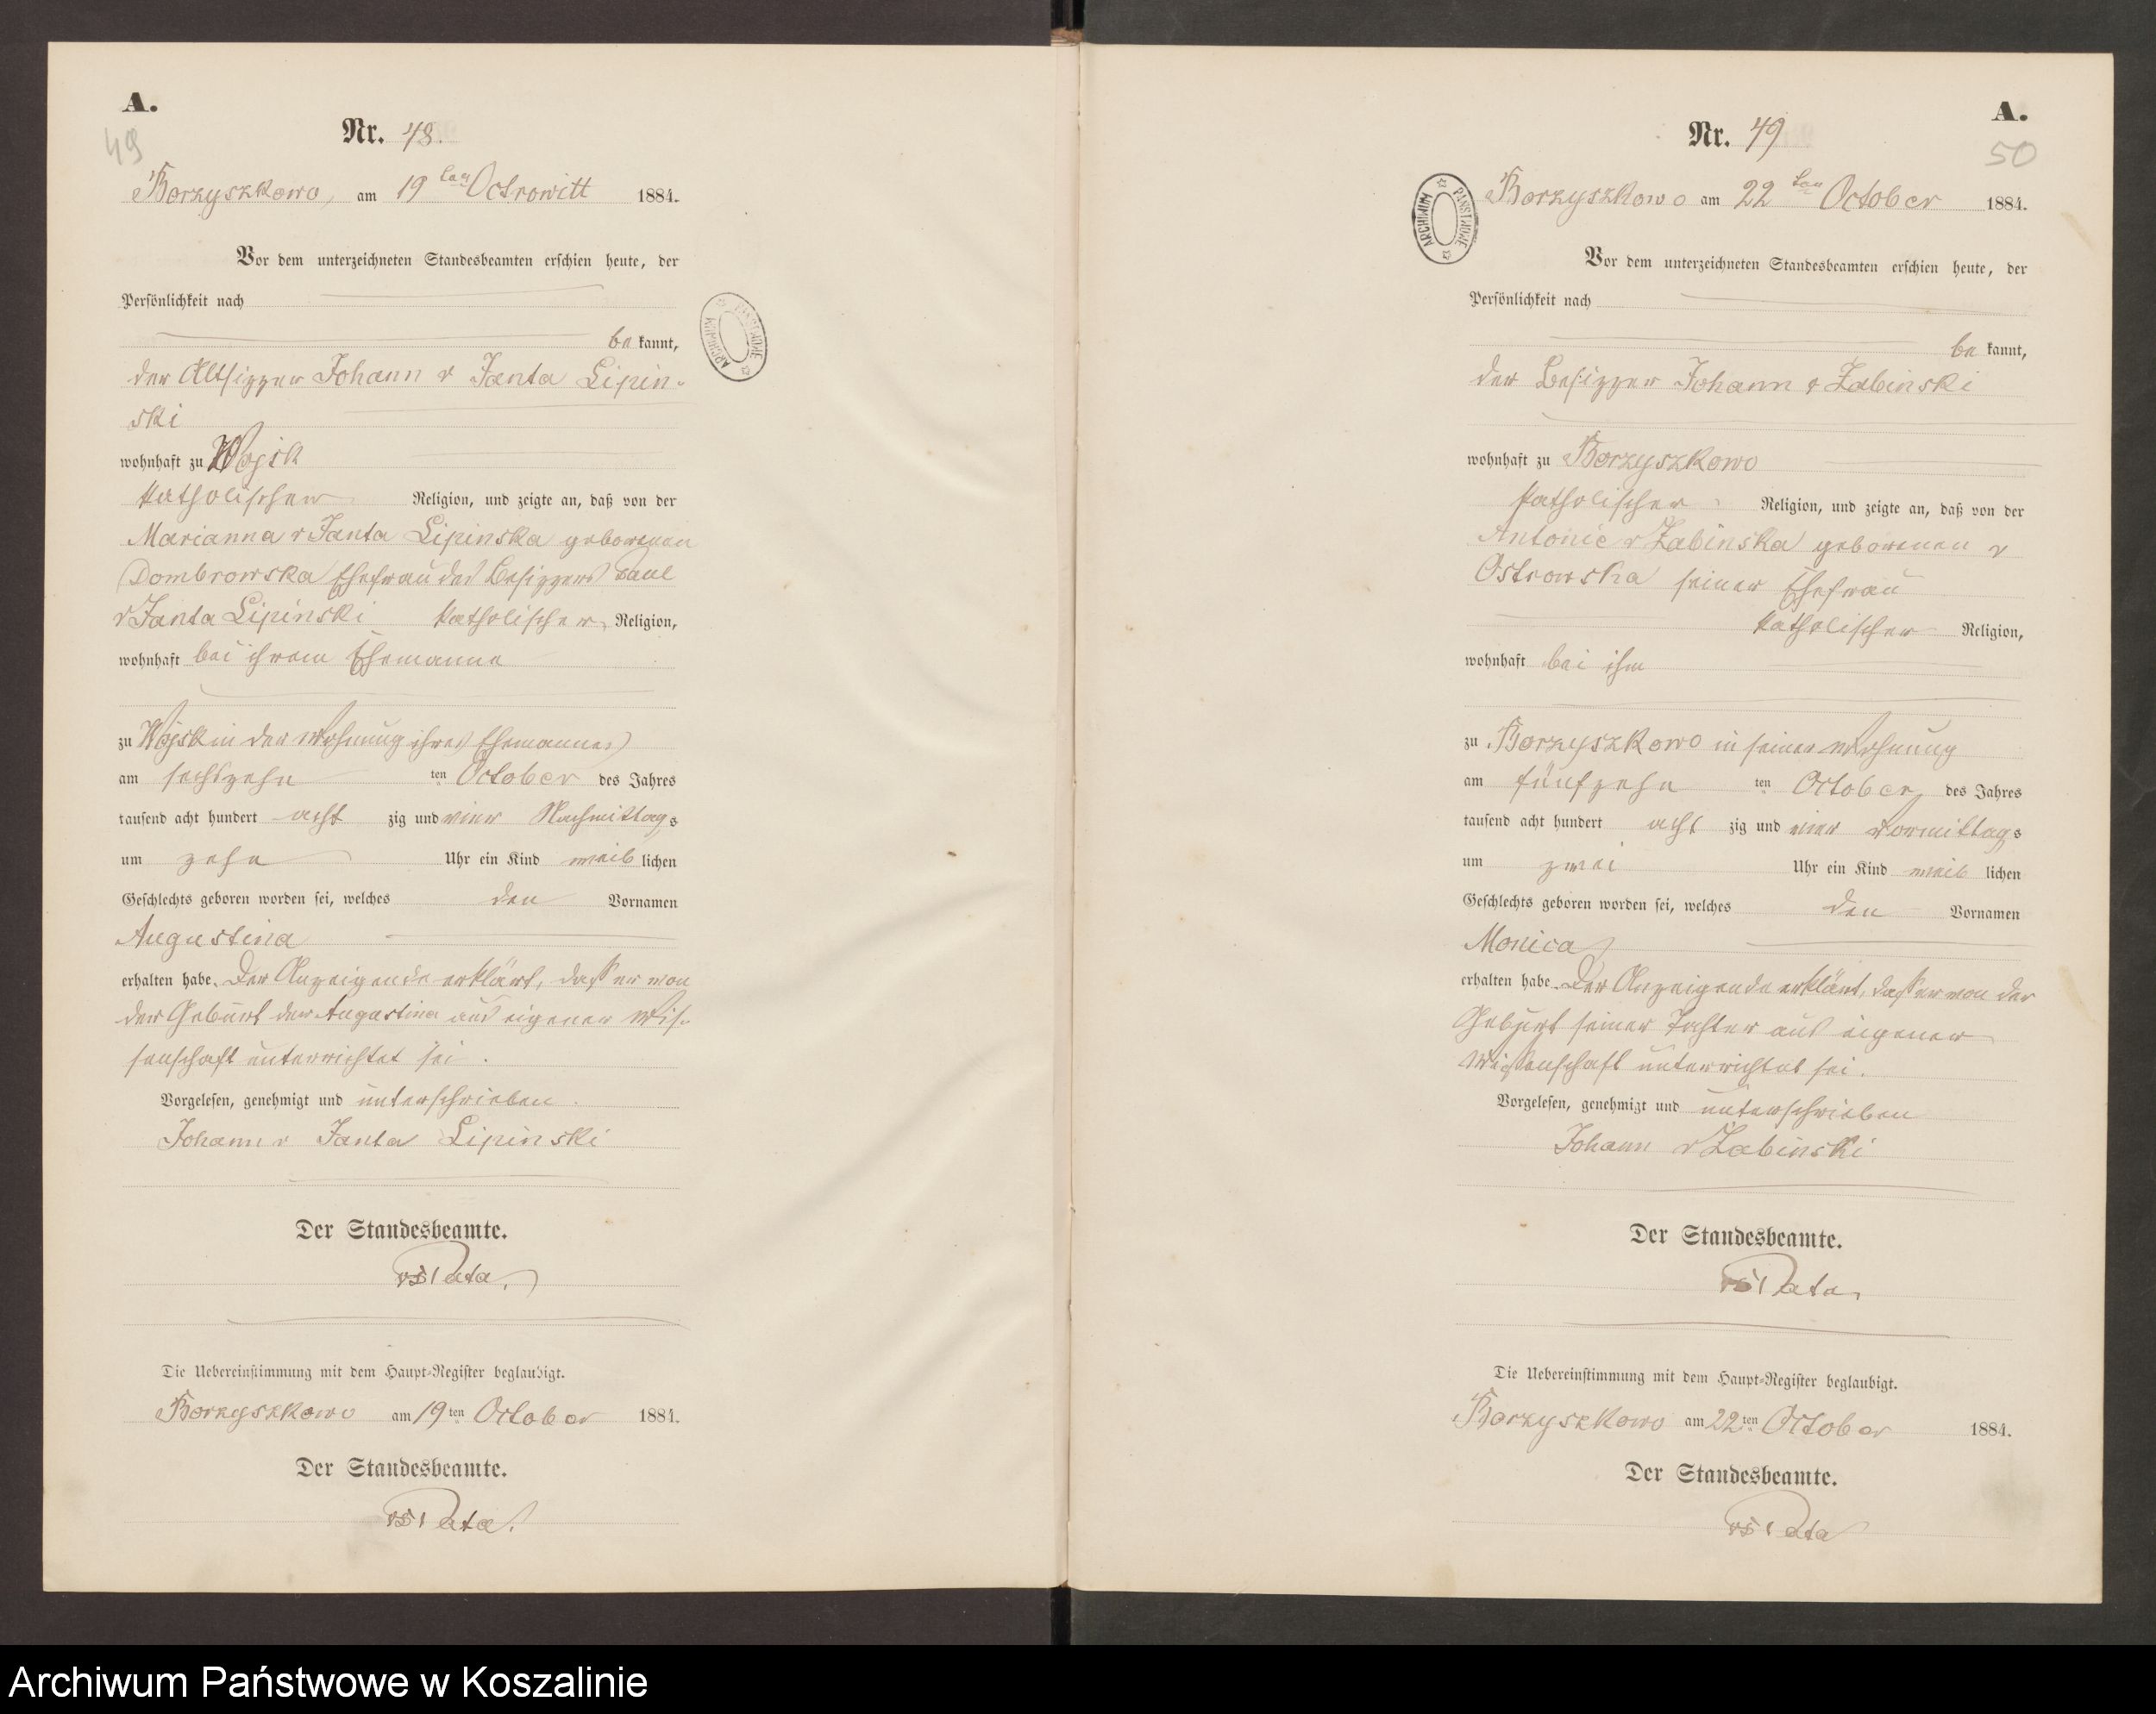 A.
49
Nr. 48.
Borzyszkowo, am 19ten Octrowitt 1884.
Vor dem unterzeichneten Standesbeamten erschien heute, der
Persönlichkeit nach
be kannt,
der Altsizzer Johann v Janta Lipin-
ski
wohnhaft zu Wojsk
katholischer Religion, und zeigte an, daß von der
Marianna v Janta Lipinska geborenen
Dombrowska Ehefrau des Besizzers Paul
v Janta Lipinski katholischer Religion,
wohnhaft bei ihrem Ehemanne
zu Wojsk in der Wohnung ihres Ehemannes
am sechszehn ten October des Jahres
tausend acht hundert acht zig und vier Nachmittags
um zehn Uhr ein Kind weib lichen
Geschlechts geboren worden sei, welches den Vornamen
Augustina
erhalten habe. Der Anzeigende erklärt, dass er von
der Geburt der Augustina aus eigener Wis-
senschaft unterrichtet sei.
Vorgelesen, genehmigt und unterschrieben.
Johann v Janta Lipinski
Der Standesbeamte.
Die Uebereinstimmung mit dem Haupt-Register beglaubigt.
Borzyszkowo am 19ten October 1884.
Der Standesbeamte.
ARCHIWUM PAŃSTWOWE
A.
50
Nr. 49
Borzyszkowo am 22ten October 1884.
Vor dem unterzeichneten Standesbeamten erschien heute, der
Persönlichkeit nach
be kannt,
der Besizzer Johann v Zabinski
wohnhaft zu Borzyszkowo
katholischer Religion, und zeigte an, daß von der
Antonie v Zabinska geborenen v
Ostrowska seiner Ehefrau
katholischer Religion,
wohnhaft bei ihm
zu Borzyszkowo in seiner Wohnung
am fünfzehn ten October des Jahres
tausend acht hundert acht zig und vier Vormittags
um zwei Uhr ein Kind weib lichen
Geschlechts geboren worden sei, welches den Vornamen
Monica
erhalten habe. Der Anzeigende erklärt, dass er von der
Geburt seiner Tochter aus eigener
Wissenschaft unterrichtet sei.
Vorgelesen, genehmigt und unterschrieben
Johann v Zabinski
Der Standesbeamte.
Die Uebereinstimmung mit dem Haupt-Register beglaubigt.
Borzyszkowo am 22ten October 1884.
Der Standesbeamte.
ARCHIWUM PAŃSTWOWE
Archiwum Państwowe w Koszalinie